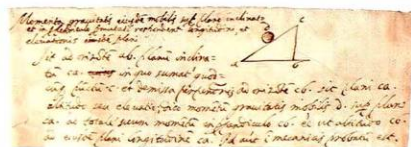 Momenta gravitatis eiusdem mobilis sup. plano inclinato
et in perpendiculo permutatim respondent longitudini, et
elevationi eiusdem plani.
c
a
b
Sit ad orizonte ab. planũ inclina-
tũ ca. in quo sumat quod
punctũ c. et demissa perpendicularis ad orizonte cb. sit plani ca.
altitudo seu elevatio: dico momẽtũ gravitatis mobilis d. sup. plano
ca. ad totale suum momẽtũ in ppendiculo cb. ẽẽ ut altitudo cb
ad eiusdẽ plani longitudinẽ ca. Id aut a mecanicis probatũ est.